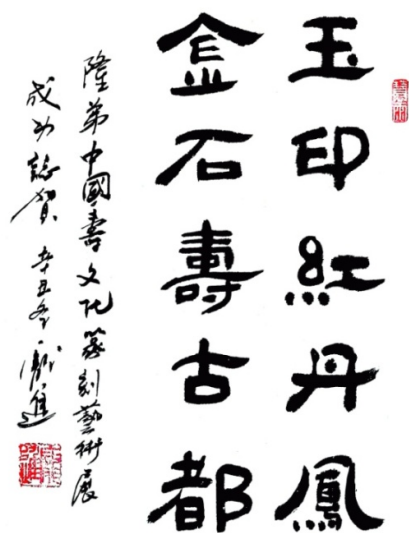 玉印紅丹鳳
金石壽古都
隆弟中國壽文化篆刻藝術展
成功誌賀 辛丑冬 獻進